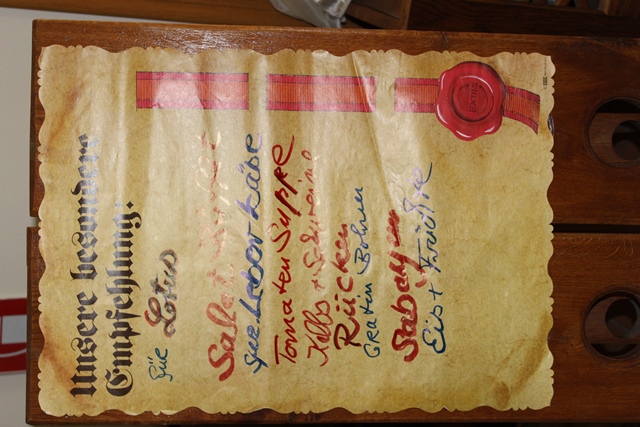 Unsere besondere
Empfehlung:
für Lotus
Salat
Leber Käse
Tomaten Suppe
Kalbs + Schweine
Rücken
Gratin Bohnen
Sabayon
Eis + Früchte